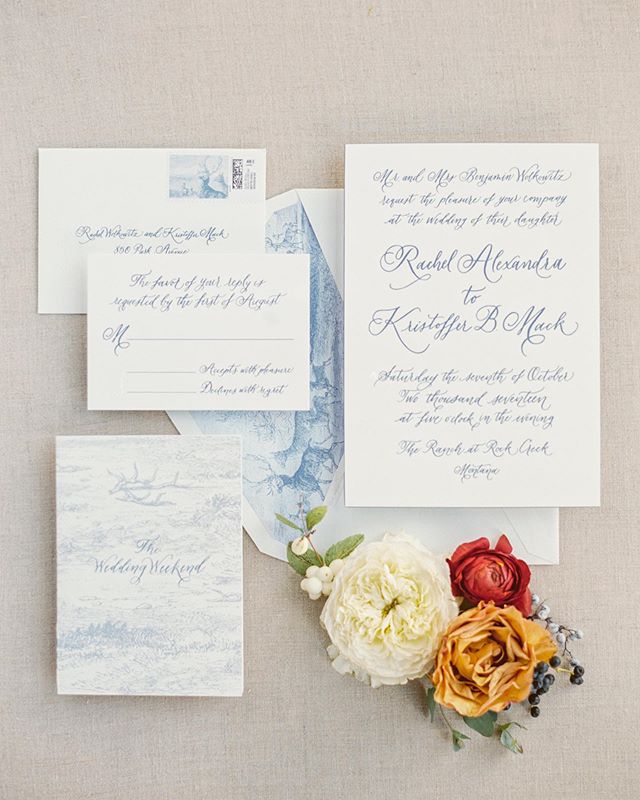 Rachel Wolkowitz and Kristoffer Mack
850 Park Avenue
The favor of your reply is
requested by the first of August
M
Accepts with pleasure
Declines with regret
The
Wedding Weekend
Mr. and Mrs. Benjamin Wolkowitz
request the pleasure of your company
at the wedding of their daughter
Rachel Alexandra
to
Kristoffer B Mack
Saturday the seventh of October
Two thousand seventeen
at five o'clock in the evening
The Ranch at Rock Creek
Montana